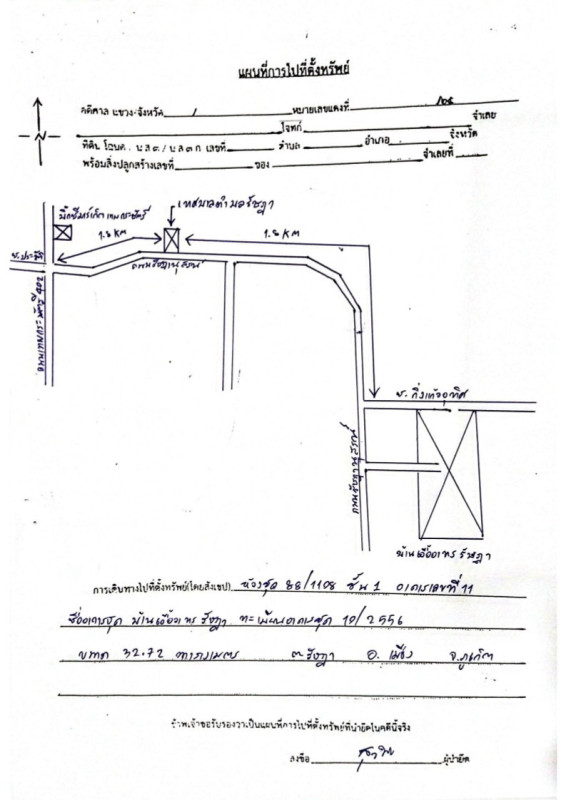 แผนที่การไปที่ตั้งทรัพย์
คดีศาล แขวง-จังหวัด / หมายเลขแดงที่
โจทก์ จำเลย
ที่ดิน โฉนด. น.ส.๓/น.ส.๓ ก เลขที่ ตำบล อำเภอ จังหวัด
พร้อมสิ่งปลูกสร้างเลขที่ ของ จำเลยที่
เทศบาลตำบลรัษฎา
1.8 KM
1.8 KM
ถนนรัษฎานุสรณ์
ถนนเทพกระษัตรี 402
ซ. กิ่งแก้วอุทิศ
ถนนรัษฎานุสรณ์
บ้านเอื้ออาทร รัษฎา
การเดินทางไปที่ตั้งทรัพย์(โดยสังเขป) ห้องชุด 88/1108 ชั้น 1 อาคารเลขที่ 11
ชื่ออาคารชุด บ้านเอื้ออาทร รัษฎา ทะเบียนอาคารชุด 10/2556
ขนาด 32.72 ตารางเมตร ต. รัษฎา อ. เมือง จ. ภูเก็ต
ข้าพเจ้าขอรับรองว่าเป็นแผนที่การไปที่ตั้งทรัพย์ที่นำยึดในคดีนี้จริง
ลงชื่อ ผู้นำยึด